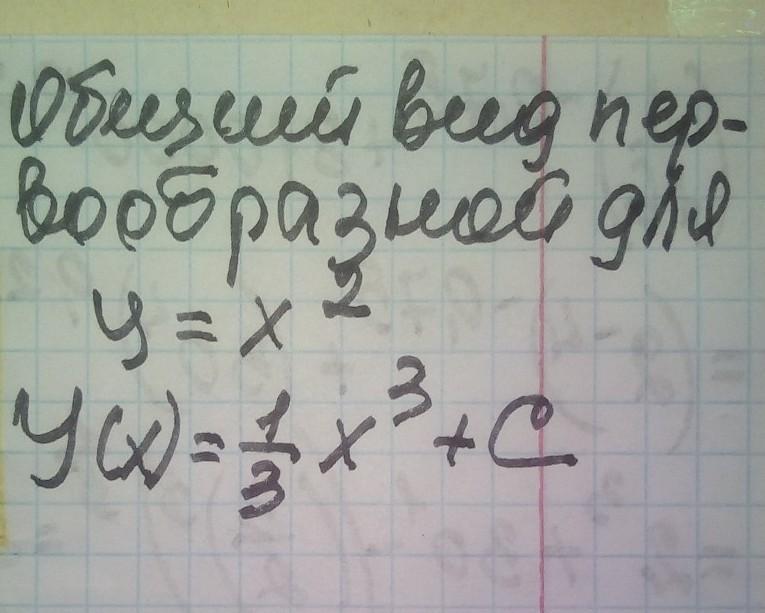 Общий вид пер-
вообразной для
y = x²
Y(x) = 1/3 x³ + C